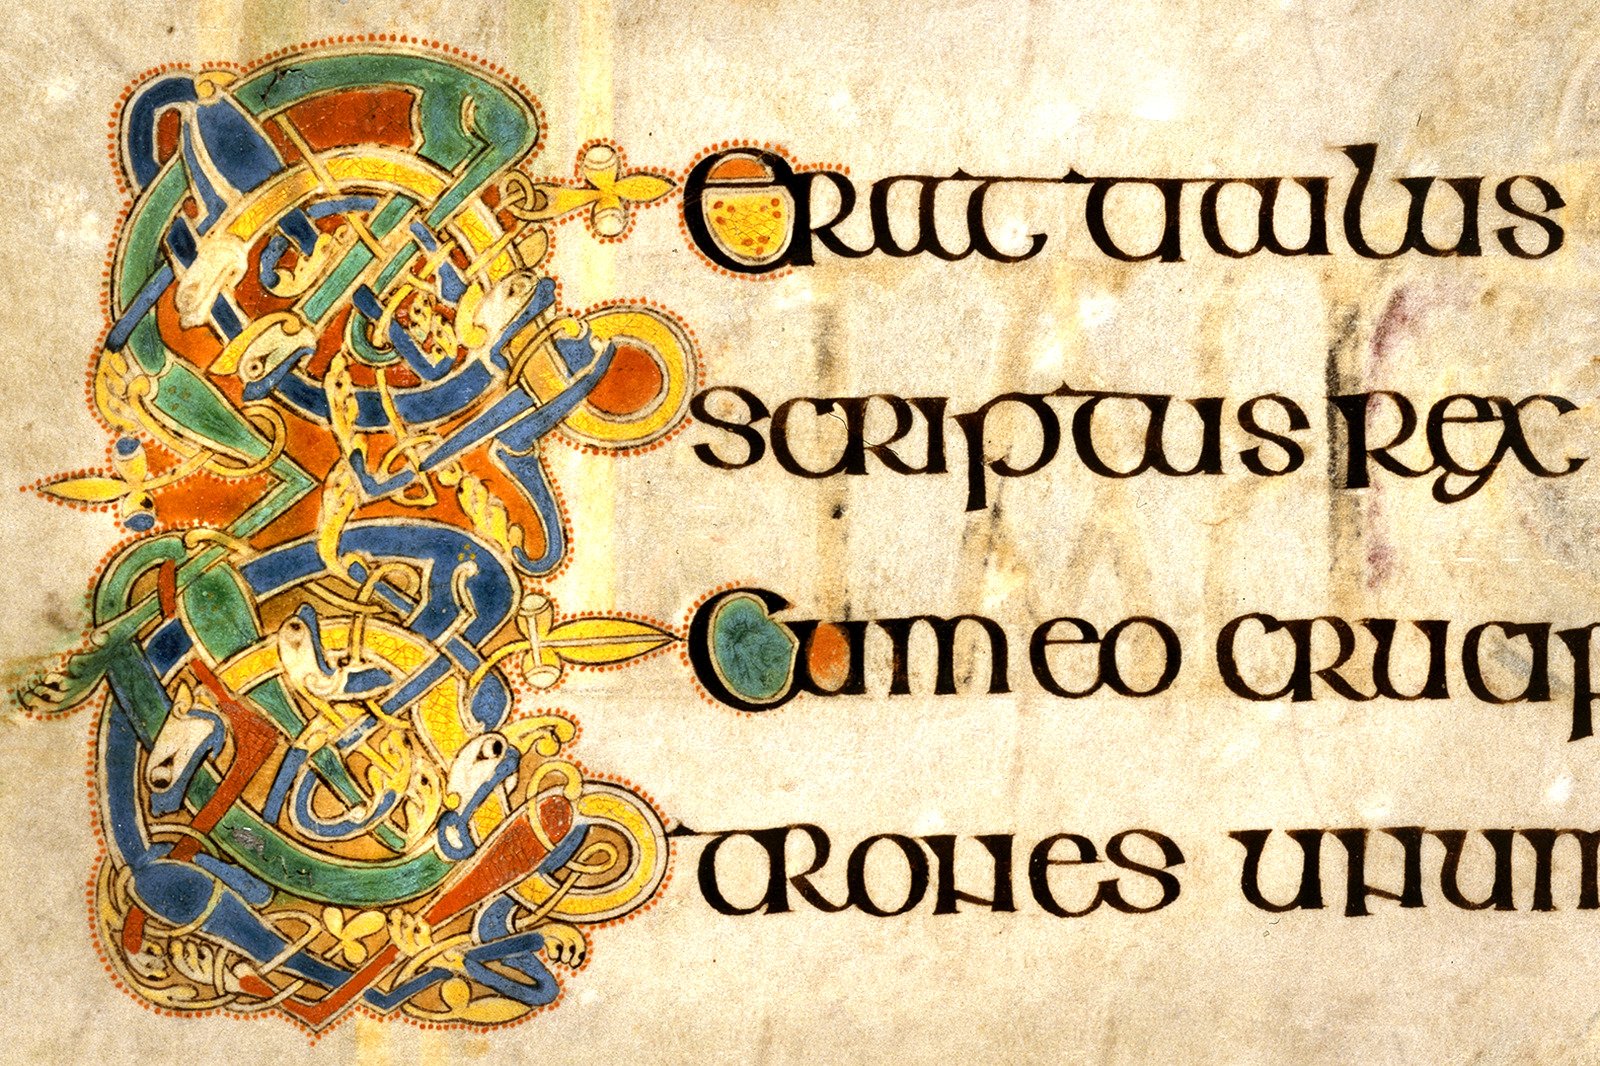 Erat titulus
scriptus rex
Cum eo crucif
trones unum